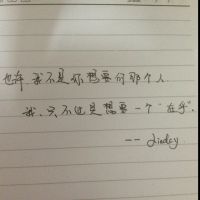 也许 我不是你想要的那个人
我，只不过是想要一个“在乎”.
-- Lindsy